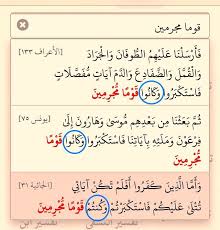 قوما مجرمين
[الأعراف ١٣٣]
فَأَرْسَلْنَا عَلَيْهِمُ الطُّوفَانَ وَالْجَرَادَ
وَالْقُمَّلَ وَالضَّفَادِعَ وَالدَّمَ آيَاتٍ مُّفَصَّلَاتٍ
فَاسْتَكْبَرُوا وَكَانُوا قَوْمًا مُّجْرِمِينَ
[يونس ٧٥]
ثُمَّ بَعَثْنَا مِن بَعْدِهِم مُّوسَىٰ وَهَارُونَ إِلَىٰ
فِرْعَوْنَ وَمَلَئِهِ بِآيَاتِنَا فَاسْتَكْبَرُوا وَكَانُوا قَوْمًا
مُّجْرِمِينَ
[الجاثية ٣١]
وَأَمَّا الَّذِينَ كَفَرُوا أَفَلَمْ تَكُنْ آيَاتِي
تُتْلَىٰ عَلَيْكُمْ فَاسْتَكْبَرْتُمْ وَكُنتُمْ قَوْمًا مُّجْرِمِينَ